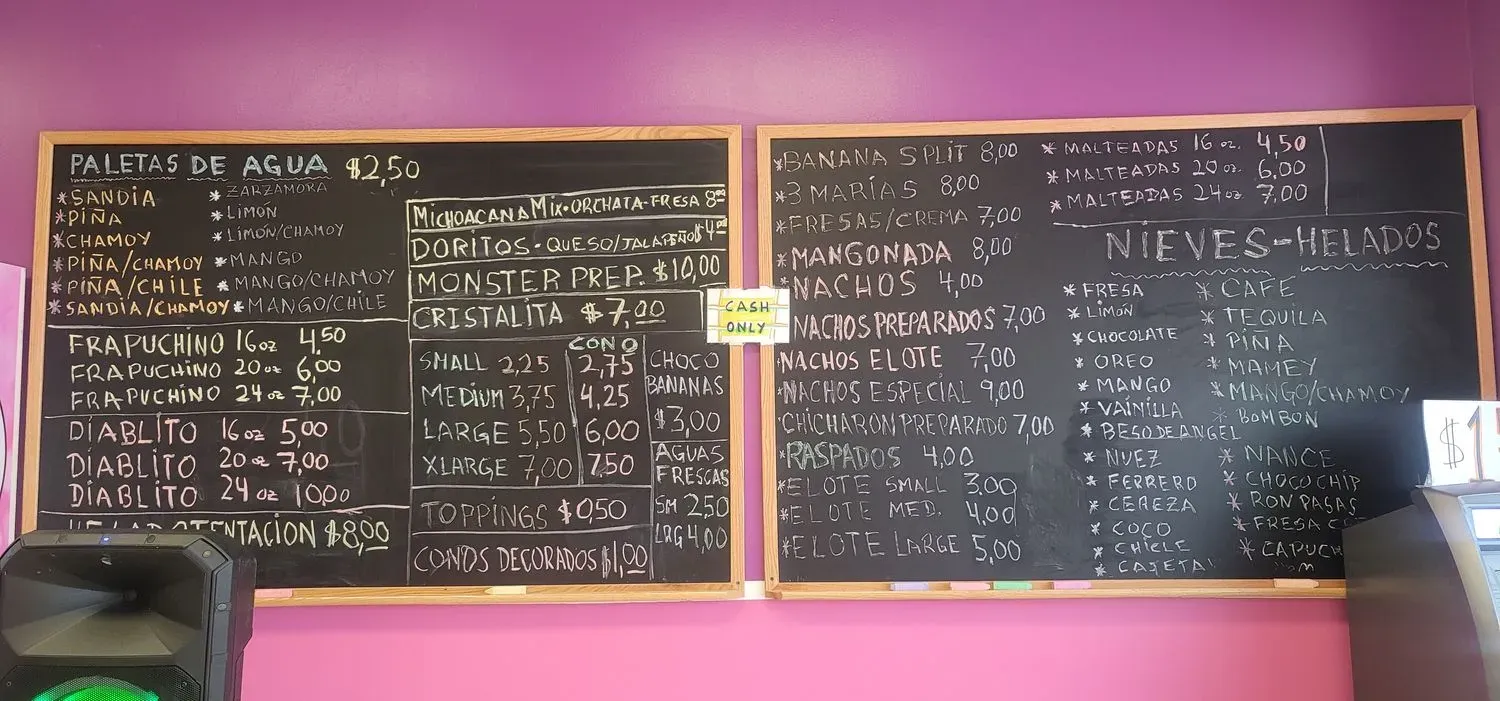 PALETAS DE AGUA $2,50
*SANDIA
*PIÑA
*CHAMOY
*PIÑA/CHAMOY
*PIÑA/CHILE
*SANDIA/CHAMOY
*ZARZAMORA
*LIMÓN
*LIMÓN/CHAMOY
*MANGO
*MANGO/CHAMOY
*MANGO/CHILE
FRAPUCHINO 16 oz 4,50
FRAPUCHINO 20 oz 6,00
FRAPUCHINO 24 oz 7,00
DIABLITO 16 oz 5,00
DIABLITO 20 oz 7,00
DIABLITO 24 oz 10,00
$8,00
MICHOACANA MIX-ORCHATA-FRESA 8,00
DORITOS-QUESO/JALAPEÑO $4,00
MONSTER PREP. $10,00
CRISTALITA $7,00
CONO
SMALL 2,25 2,75
MEDIUM 3,75 4,25
LARGE 5,50 6,00
XLARGE 7,00 7,50
TOPPINGS $0,50
CONOS DECORADOS $1,00
CHOCO
BANANAS
$3,00
AGUAS
FRESCAS
SM 2,50
LRG 4,00
CASH
ONLY
*BANANA SPLIT 8,00
*3 MARÍAS 8,00
*FRESAS/CREMA 7,00
*MANGONADA 8,00
*NACHOS 4,00
NACHOS PREPARADOS 7,00
*NACHOS ELOTE 7,00
*NACHOS ESPECIAL 9,00
*CHICHARON PREPARADO 7,00
*RASPADOS 4,00
*ELOTE SMALL 3,00
*ELOTE MED. 4,00
*ELOTE LARGE 5,00
*MALTEADAS 16 oz. 4,50
*MALTEADAS 20 oz. 6,00
*MALTEADAS 24 oz 7,00
NIEVES-HELADOS
*FRESA
*LIMÓN
*CHOCOLATE
*OREO
*MANGO
*VAINILLA
*BESO DE ANGEL
*NUEZ
*FERRERO
*CEREZA
*COCO
*CHICLE
*CAJETA
*CAFE
*TEQUILA
*PIÑA
*MAMEY
*MANGO/CHAMOY
*BOMBON
*NANCE
*CHOCO CHIP
*RON PASAS
*FRESA
*CAPUCH
$